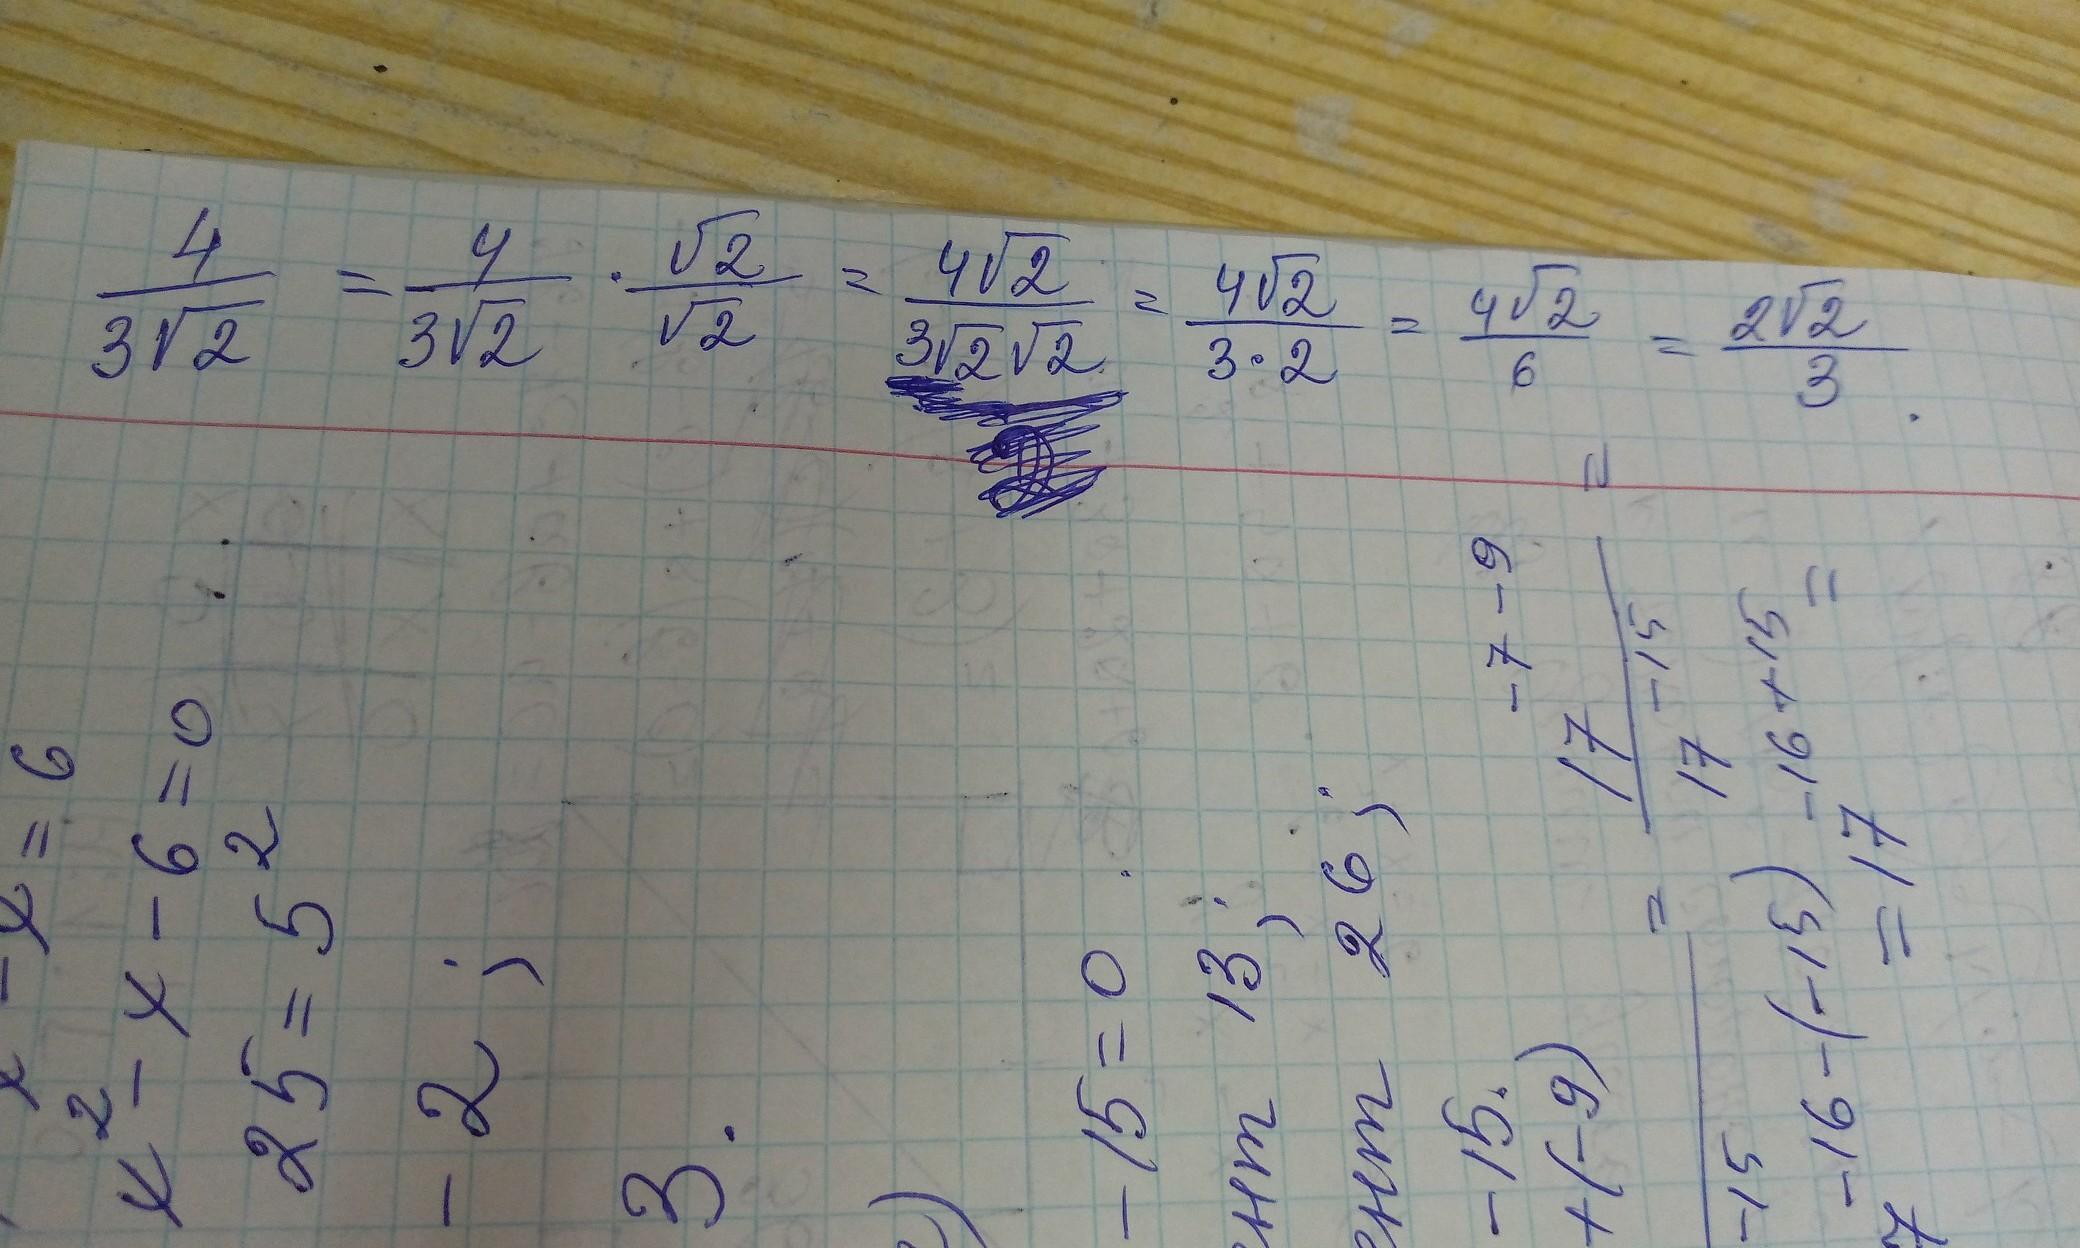 4/(3√2) = 4/(3√2) · √2/√2 = 4√2/(3√2√2) = 4√2/(3·2) = 4√2/6 = 2√2/3.
- x = 6
x² - x - 6 = 0
25 = 5²
- 2;
3.
)
- 15 = 0
ент 13;
ент 26;
-15.
+(-9) -7 -9
= 17 =
-15 17 -15
-16 -(-15) -16 +15 =
7 = 17